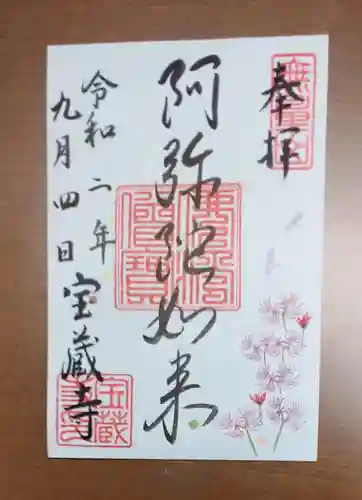 奉拝
阿弥陀如来
令和二年
九月四日
宝蔵寺